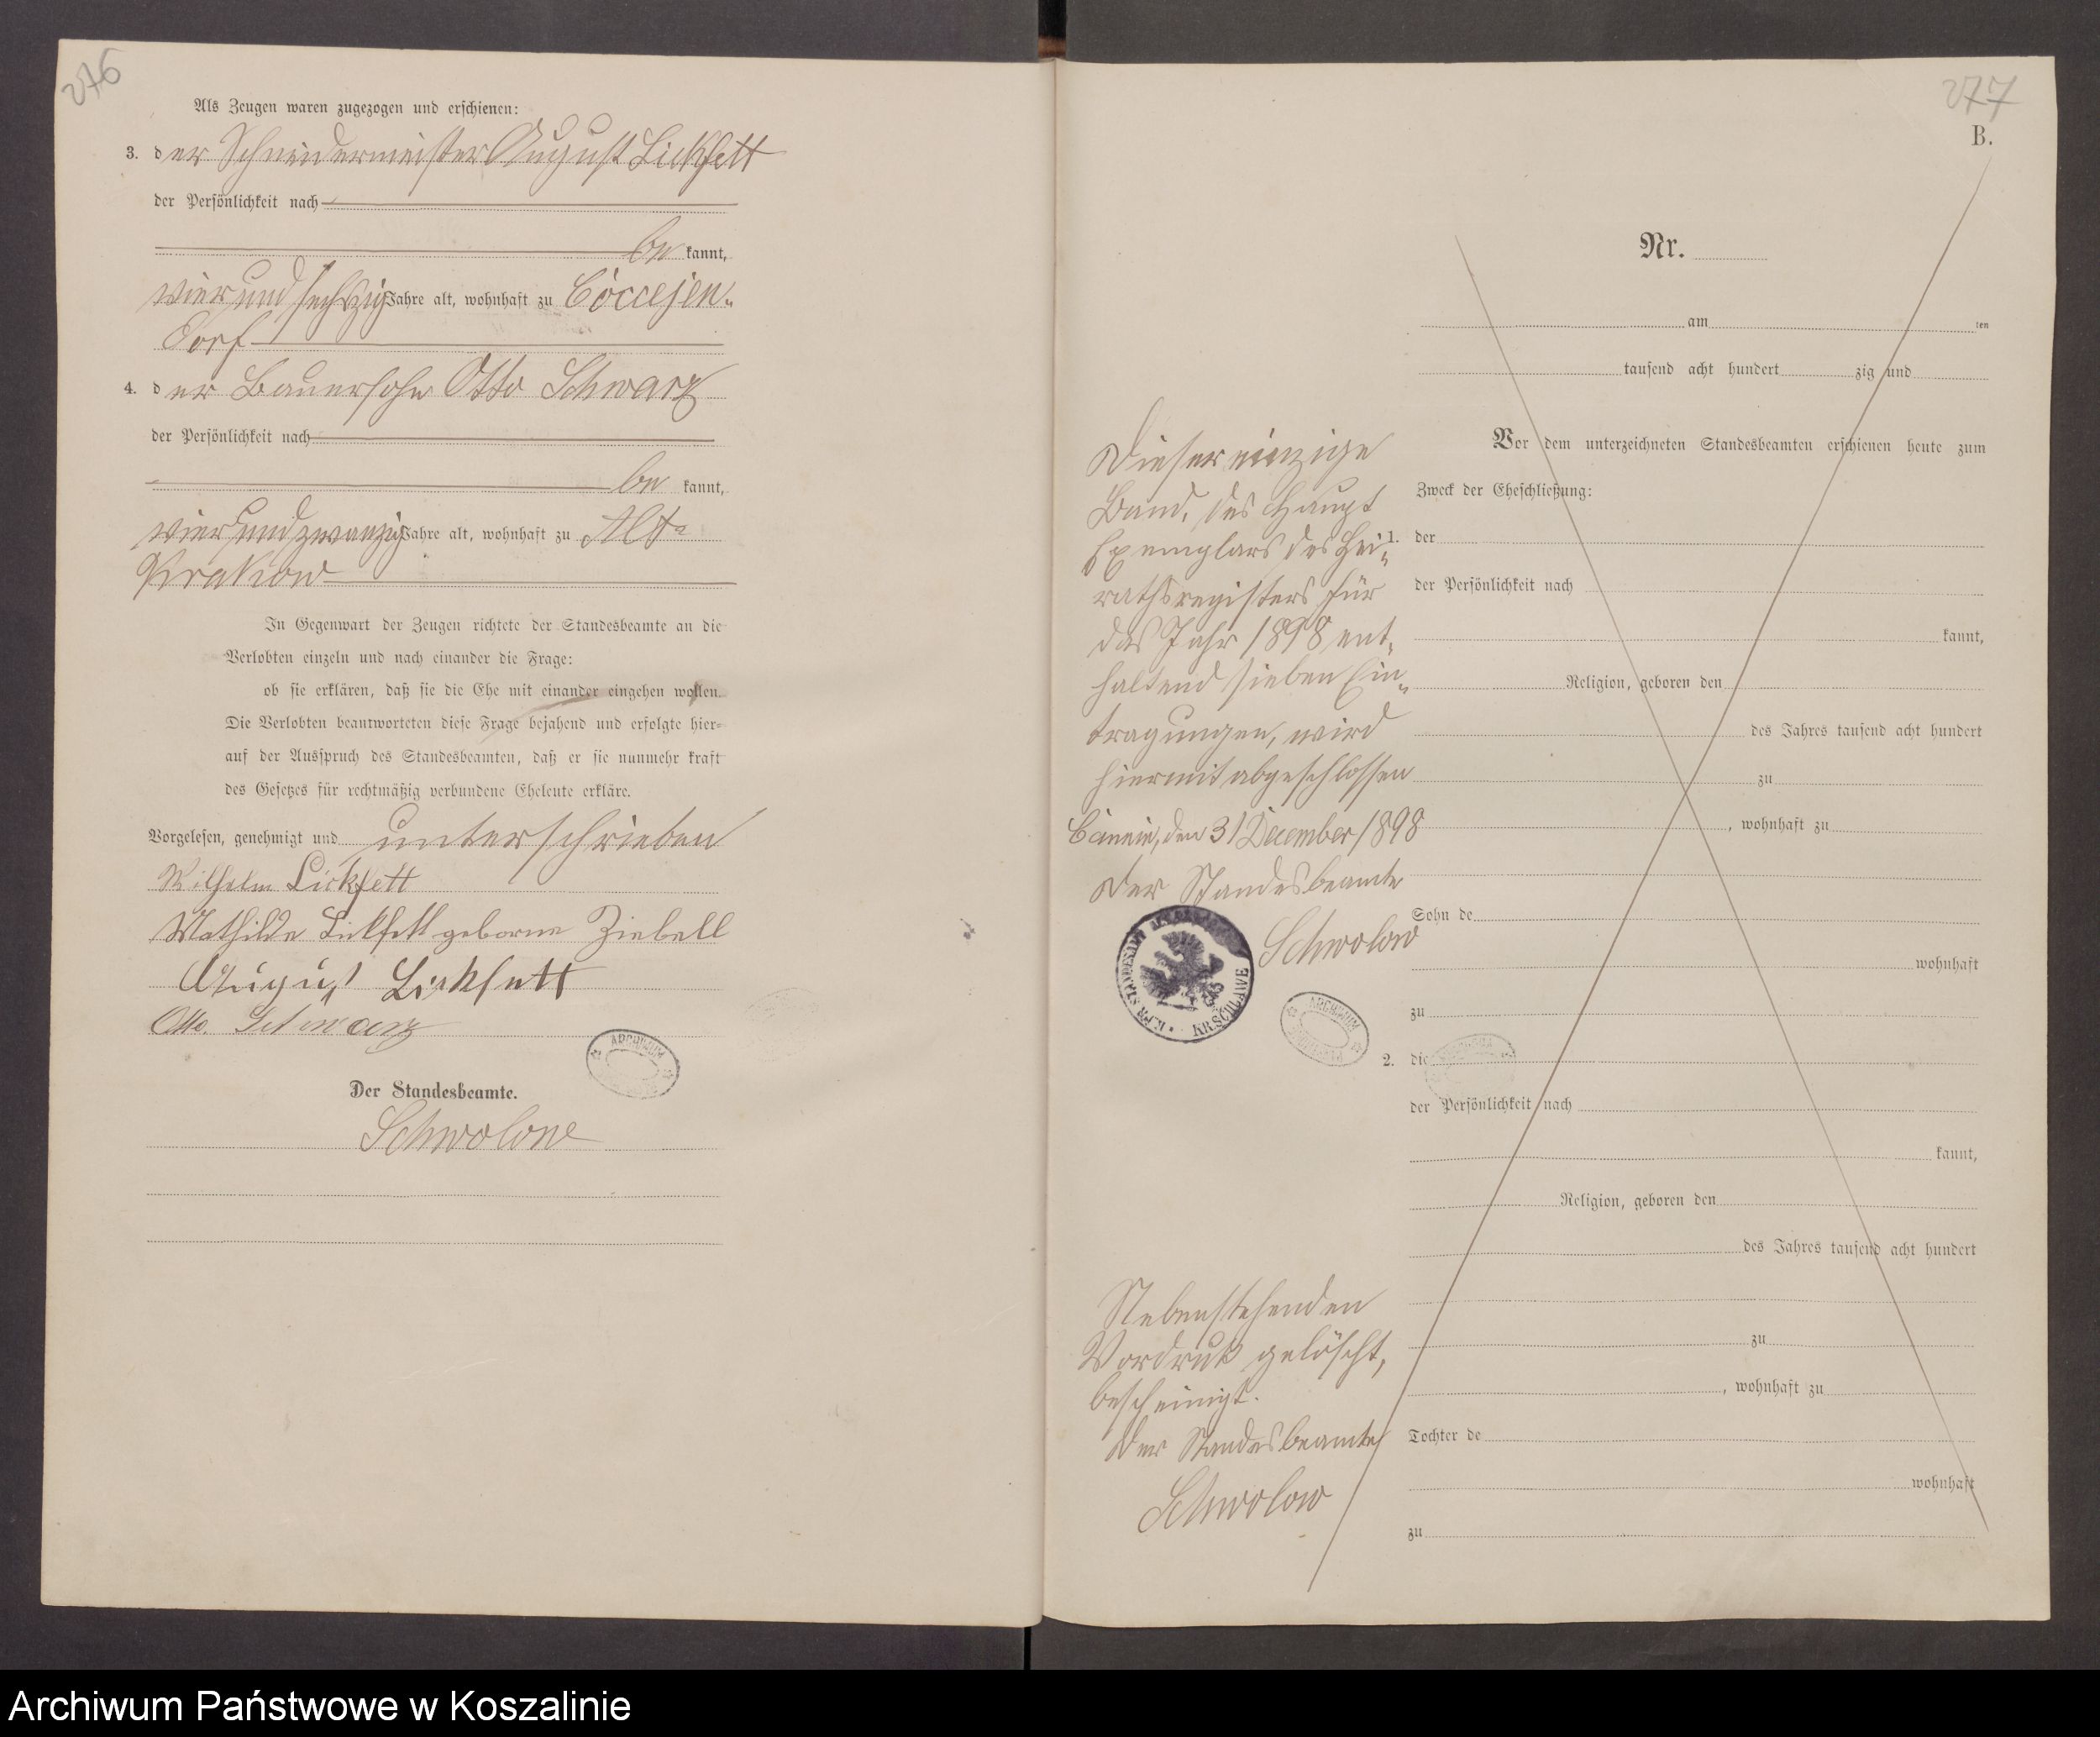 276
Als Zeugen waren zugezogen und erschienen:
3. der Schneidermeister August Lickfett
der Persönlichkeit nach
be kannt,
vier und sechszig Jahre alt, wohnhaft zu Coccejen-
dorf
4. der Bauersohn Otto Schwarz
der Persönlichkeit nach
be kannt,
vier und zwanzig Jahre alt, wohnhaft zu Alt-
Krakow
In Gegenwart der Zeugen richtete der Standesbeamte an die
Verlobten einzeln und nach einander die Frage:
ob sie erklären, daß sie die Ehe mit einander eingehen wollen.
Die Verlobten beantworteten diese Frage bejahend und erfolgte hier-
auf der Ausspruch des Standesbeamten, daß er sie nunmehr kraft
des Gesetzes für rechtmäßig verbundene Eheleute erkläre.
Vorgelesen, genehmigt und unterschrieben
Wilhelm Lickfett
Mathilde Lickfett geborne Ziebell
August Lickfett
Otto Schwarz
ARCHIWUM
Der Standesbeamte.
Schwolow
277
B.
Nr.
am ten
tausend acht hundert zig und
Vor dem unterzeichneten Standesbeamten erschienen heute zum
Zweck der Eheschließung:
1. der
der Persönlichkeit nach
kannt,
Religion, geboren den
des Jahres tausend acht hundert
zu
, wohnhaft zu
Sohn de
wohnhaft
zu
2. die
der Persönlichkeit nach
kannt,
Religion, geboren den
des Jahres tausend acht hundert
zu
, wohnhaft zu
Tochter de
wohnhaft
zu
Dieser einzige
Band, des Haupt
Exemplars des Hei-
rathsregisters für
das Jahr 1898 ent-
haltend sieben Ein-
tragungen, wird
hiermit abgeschlossen
den 31 December 1898
Der Standesbeamte
Schwolow
K. PR. STANDESAMT
KR. SCHLAWE
ARCHIWUM
Nebenstehenden
Vordruck gelöscht,
bescheinigt.
Der Standesbeamte
Schwolow
Archiwum Państwowe w Koszalinie